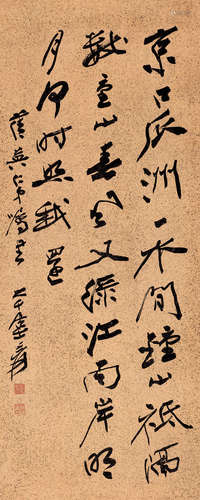 京口瓜洲一水間鐘山祗隔
數重山春風又綠江南岸明
月何時照我還
蔭英仁弟囑書 大千張爰